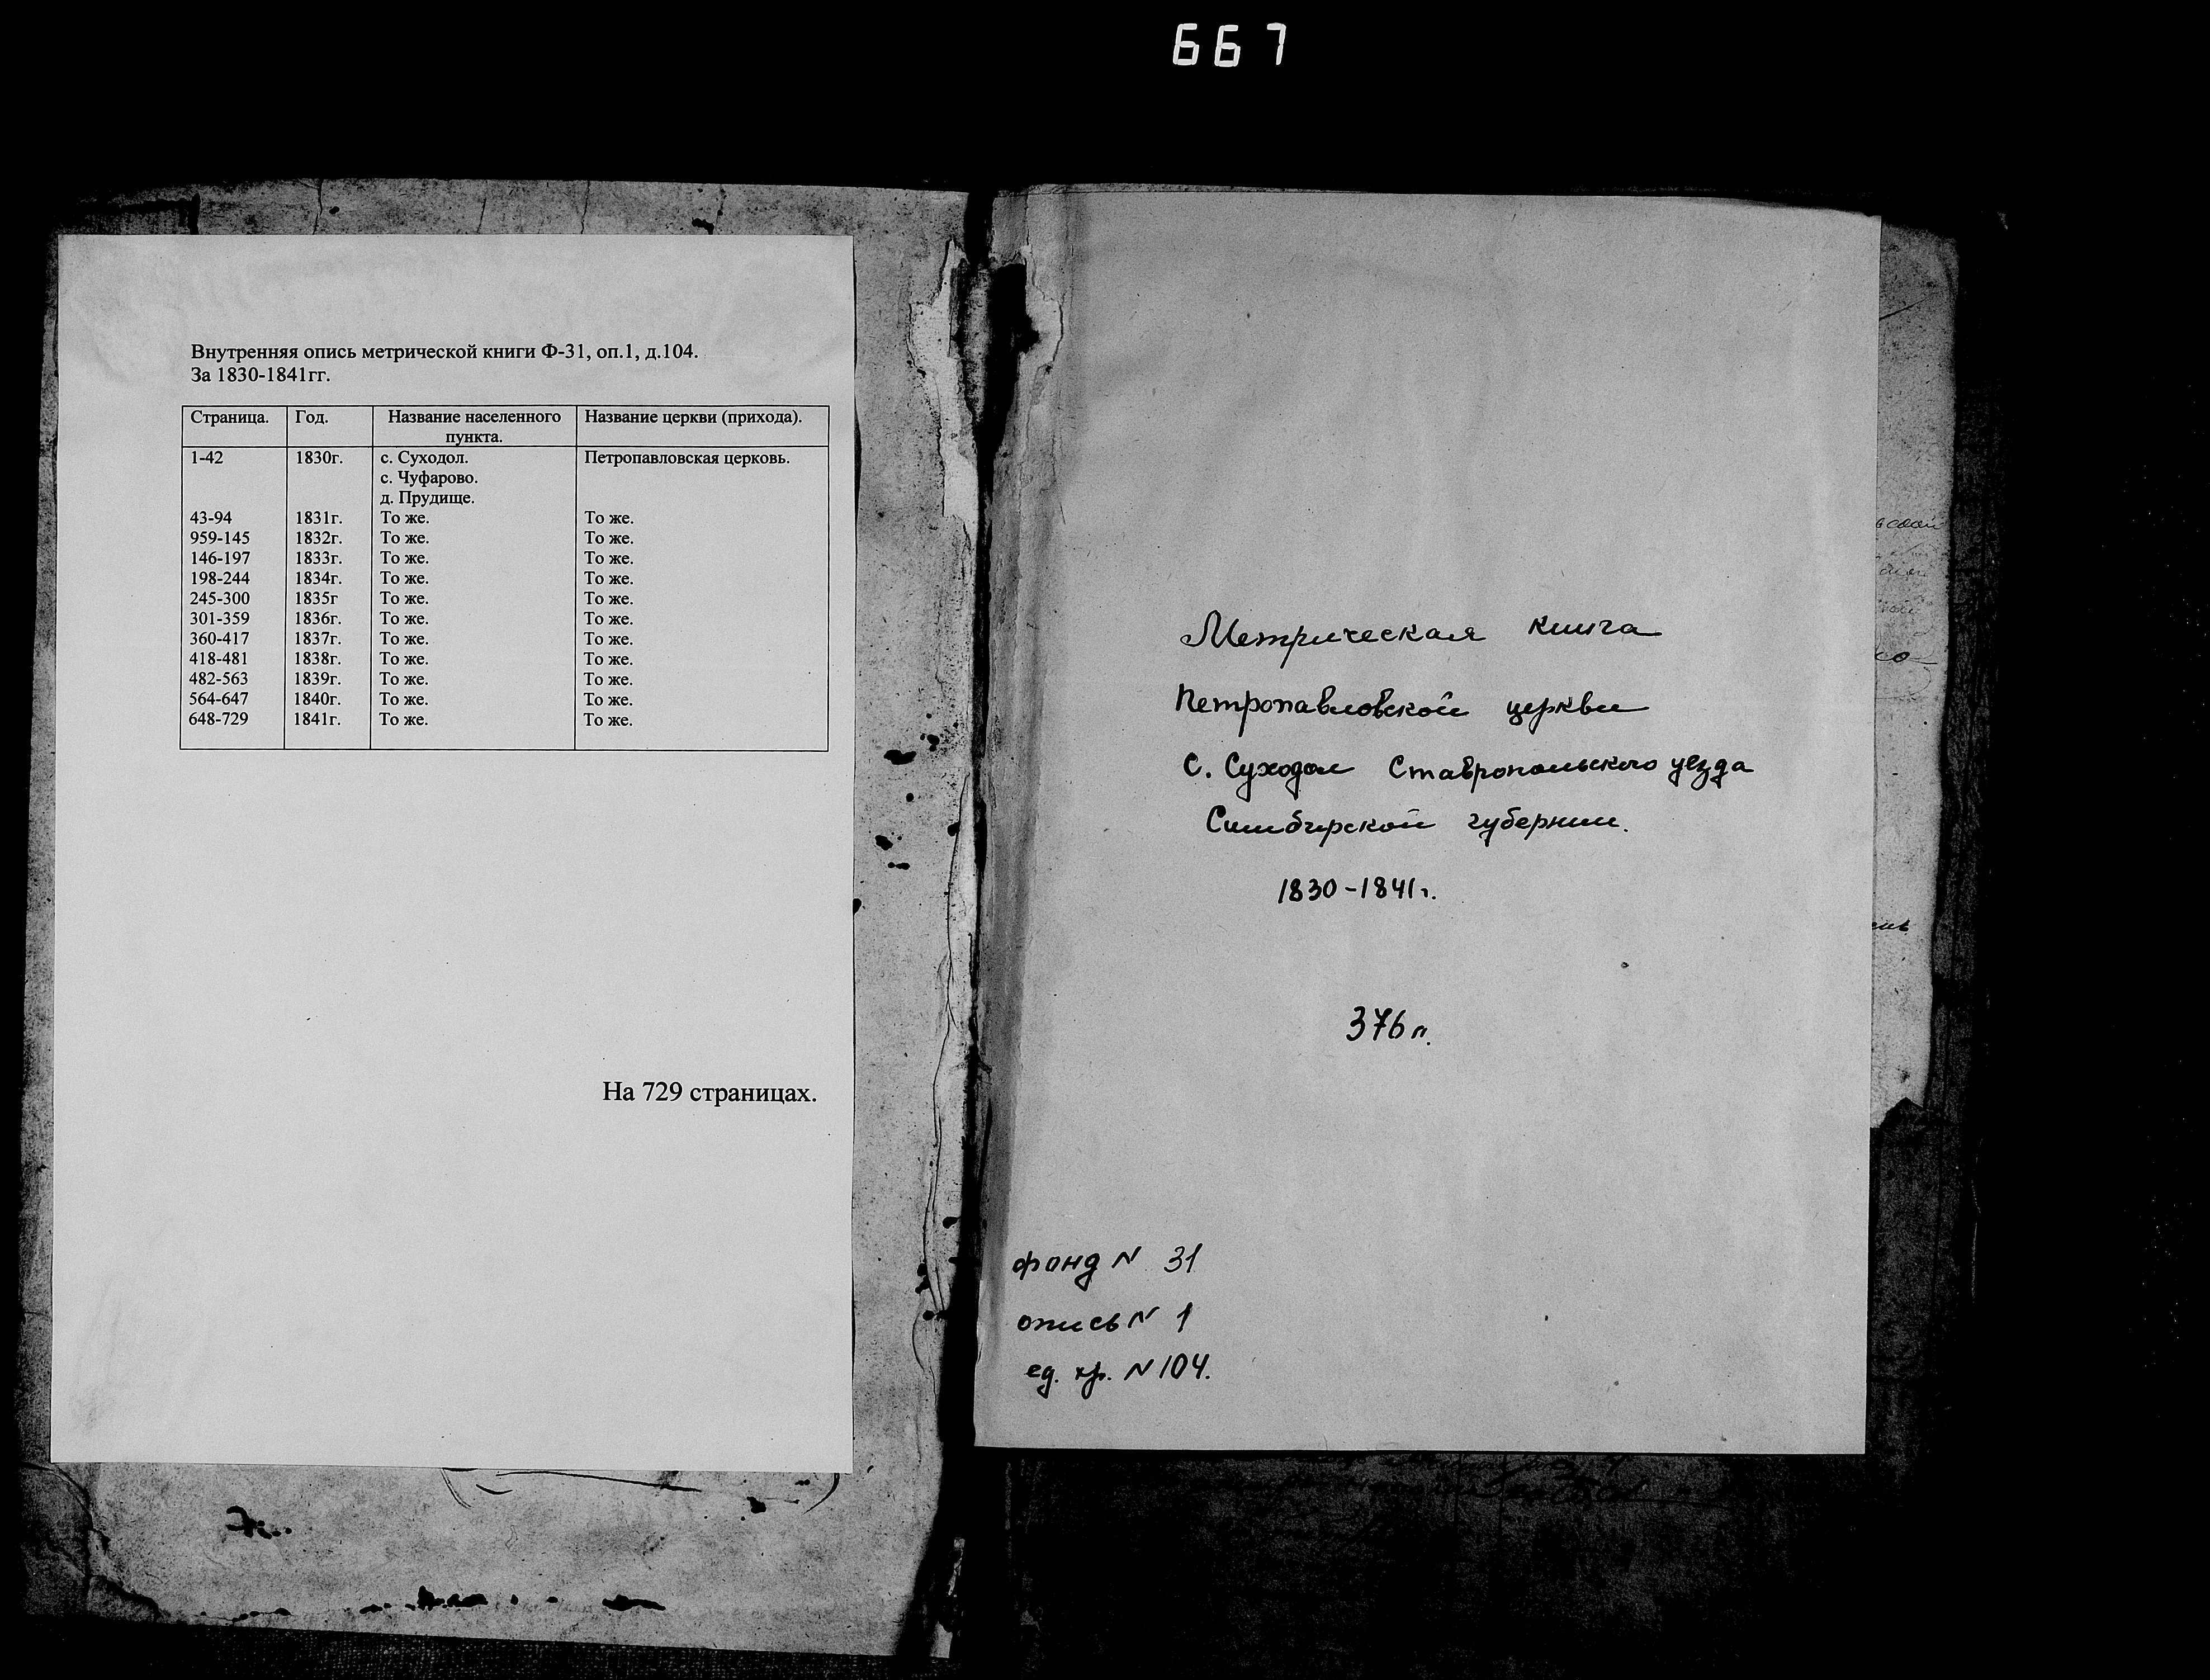 667
Внутренняя опись метрической книги Ф-31, оп.1, д.104.
За 1830-1841гг.
Страница. Год. Название населенного пункта. Название церкви (прихода).
1-42 1830г. с. Суходол. Петропавловская церковь.
с. Чуфарово.
д. Прудище.
43-94 1831г. То же. То же.
959-145 1832г. То же. То же.
146-197 1833г. То же. То же.
198-244 1834г. То же. То же.
245-300 1835г То же. То же.
301-359 1836г. То же. То же.
360-417 1837г. То же. То же.
418-481 1838г. То же. То же.
482-563 1839г. То же. То же.
564-647 1840г. То же. То же.
648-729 1841г. То же. То же.
На 729 страницах.
Метрическая книга
Петропавловской церкви
с. Суходол Ставропольского уезда
Симбирской губернии.
1830-1841г.
376 л.
фонд N 31
опись N 1
ед. хр. N 104.